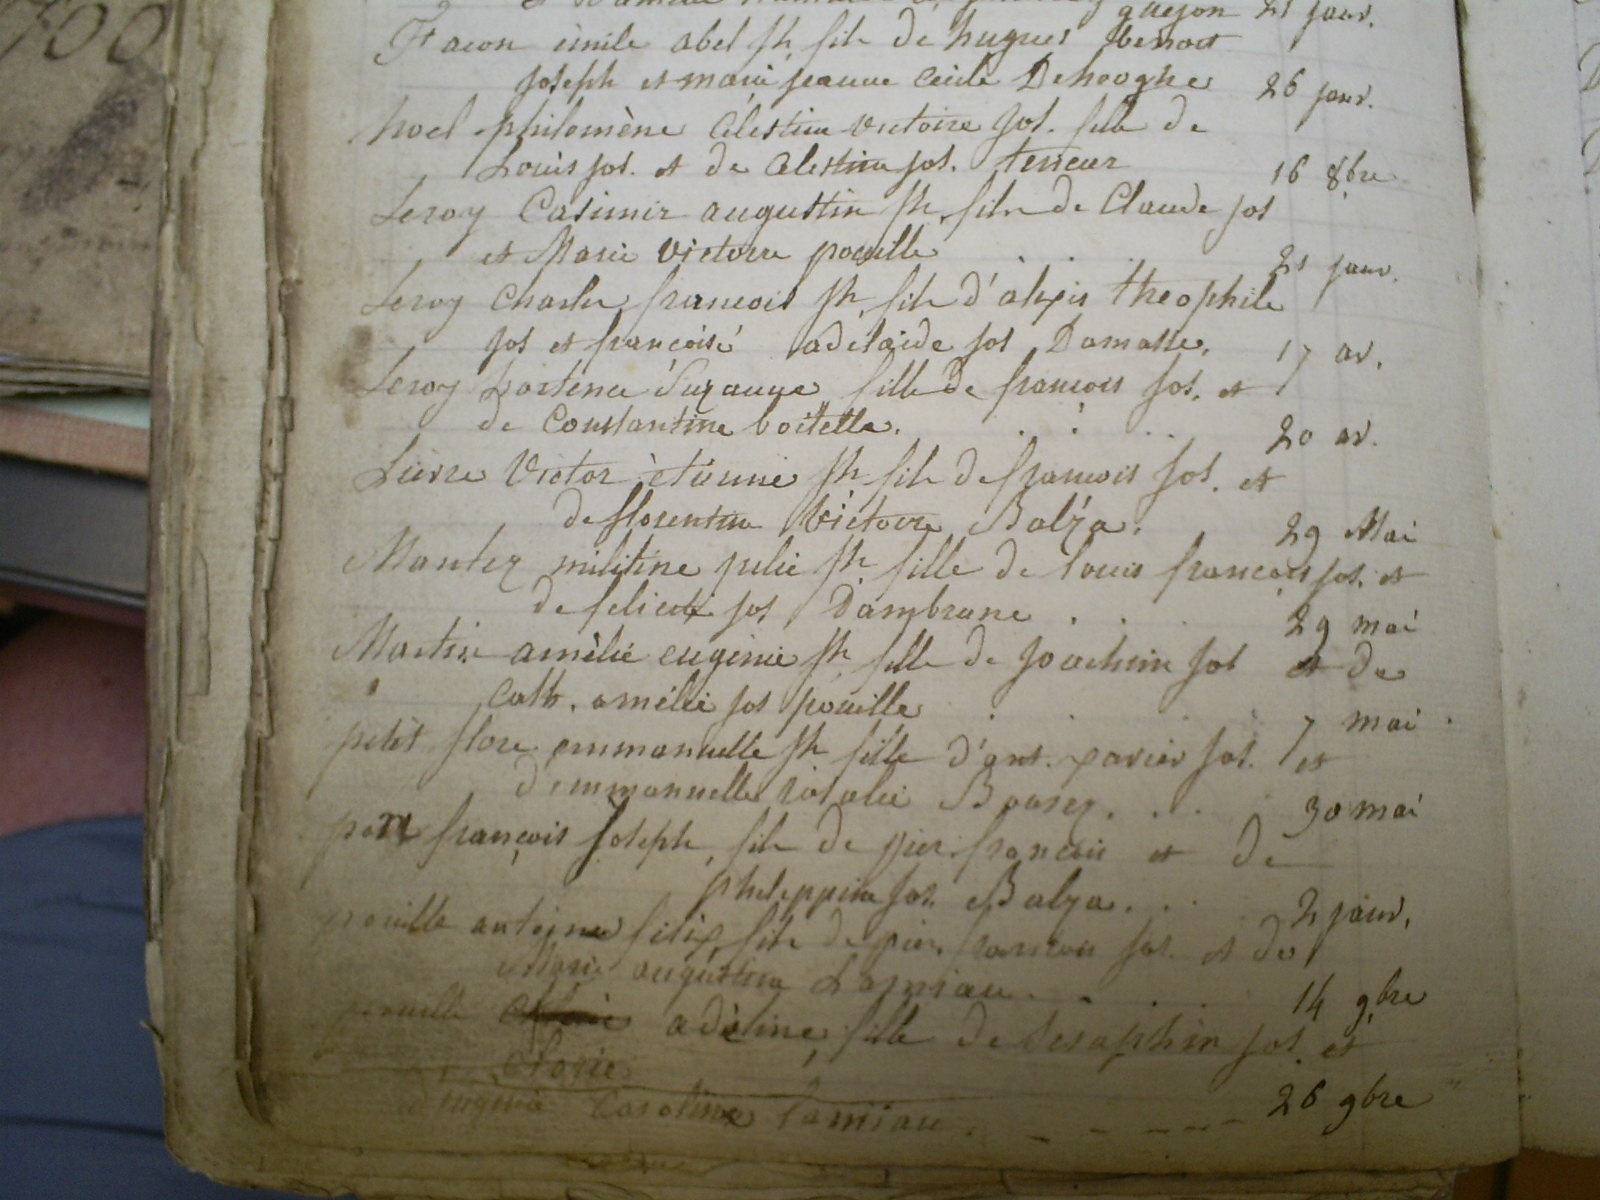 guesjon 21 janv.
Facon émile abel jh fils de hugues benoit
joseph et marie jeanne cécile Dehooghe 26 janv.
hoel philomène Célestine victoire jos. fille de
Louis jos. et de Célestine jos. teneur 16 8bre
Leroy Casimir augustin jh fils de Claude jos
et Marie victoire pouille 21 janv.
Leroy charles françois jh fils d'alexis theophile
jos et françoise adelaide jos Damasse. 17 av.
Leroy hortence Suzanne fille de françois jos. et
de constantine boitelle. 20 av.
Lievre Victor étienne jh fils de françois jos. et
de florentine Victoire Balza. 29 Mai
Mantez militine julie jh fille de louis françois jos. et
de felicité jos Dambrune . . 29 mai
Martin amélie eugénie jh fille de joachim jos et de
cath. amélie jos pouille . . 7 mai
petit flore emmanuelle jh fille d'ant. xavier jos. et
d'emmanuelle rosalie Boursez. . . . 30 mai
françois joseph, fils de pier. françois et de
philippine jos. Balza. . . 2 janv.
pouille antoine felix fils de pier. françois jos. et de
Marie augustine Lamiau. . . 14 9bre
pouille adéline, fille de seraphin jos. et
Marie
Caroline Lamiau. 26 9bre